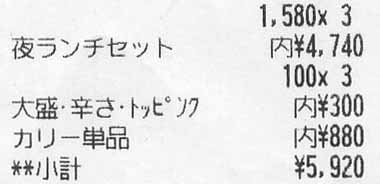 1,580x 3
夜ランチセット 内¥4,740
100x 3
大盛・辛さ・ﾄｯﾋﾟﾝｸ 内¥300
カリー単品 内¥880
**小計 ¥5,920